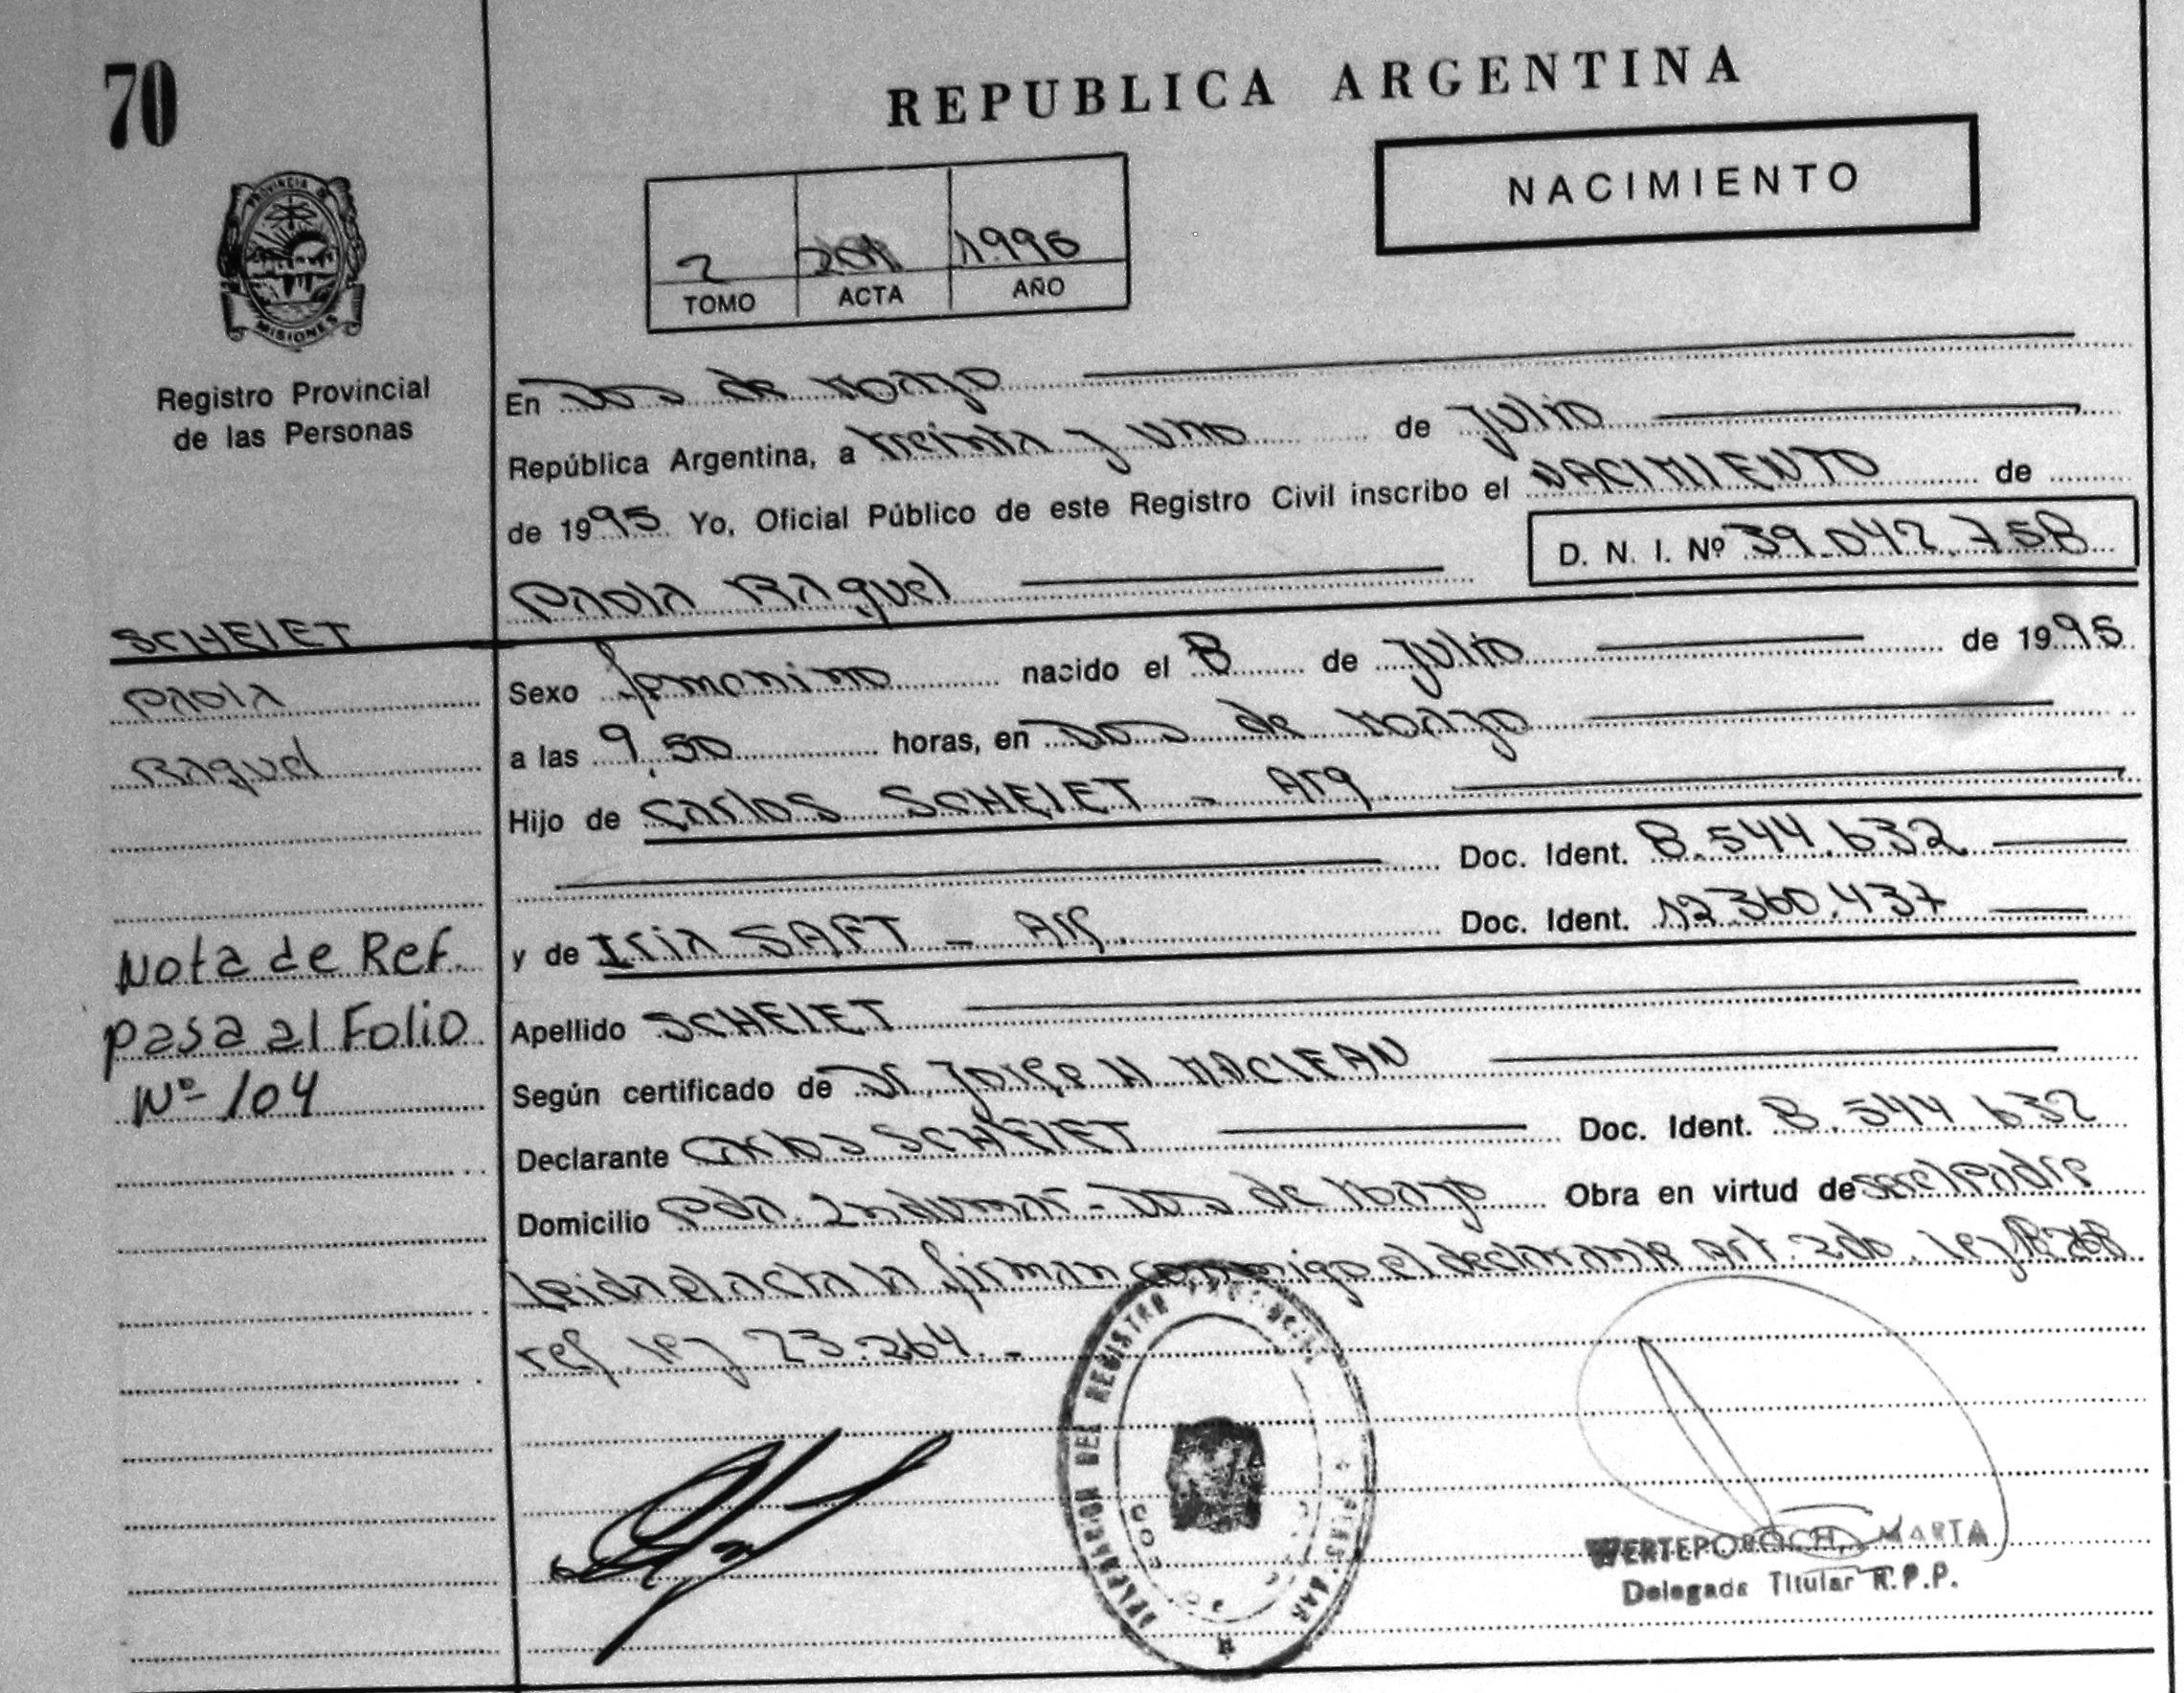 70
REPUBLICA ARGENTINA
NACIMIENTO
PROVINCIA DE
MISIONES
2 1.995
TOMO ACTA AÑO
Registro Provincial
de las Personas
En Dos de Mayo
República Argentina, a treinta y uno de Julio
de 1995 Yo, Oficial Público de este Registro Civil inscribo el NACIMIENTO de
D. N. I. Nº 39.042.758
Paola Raquel
SCHEIET
Paola
Raquel
Sexo femenino nacido el 8 de Julio de 1995
a las 9,50 horas, en Dos de Mayo
Hijo de Carlos SCHEIET - Arg.
Doc. Ident. 8.544.632
y de Iria SAFT - Arg. Doc. Ident. 12.360.437
Apellido SCHEIET
Según certificado de Dr. Jorge H MACLEAN
Declarante Carlos SCHEIET Doc. Ident. 8.544.632
Domicilio Pda. Indumar - Dos de Mayo Obra en virtud de ser el Padre
Leida el acta la firman conmigo el declarante Art. 2do. Ley 18.268
ref. ley 23.264.-
Nota de Ref.
pasa al Folio
Nº 104
DELEGACION DEL REGISTRO
WERTEPOROCH, MARTA
Delegada Titular R.P.P.